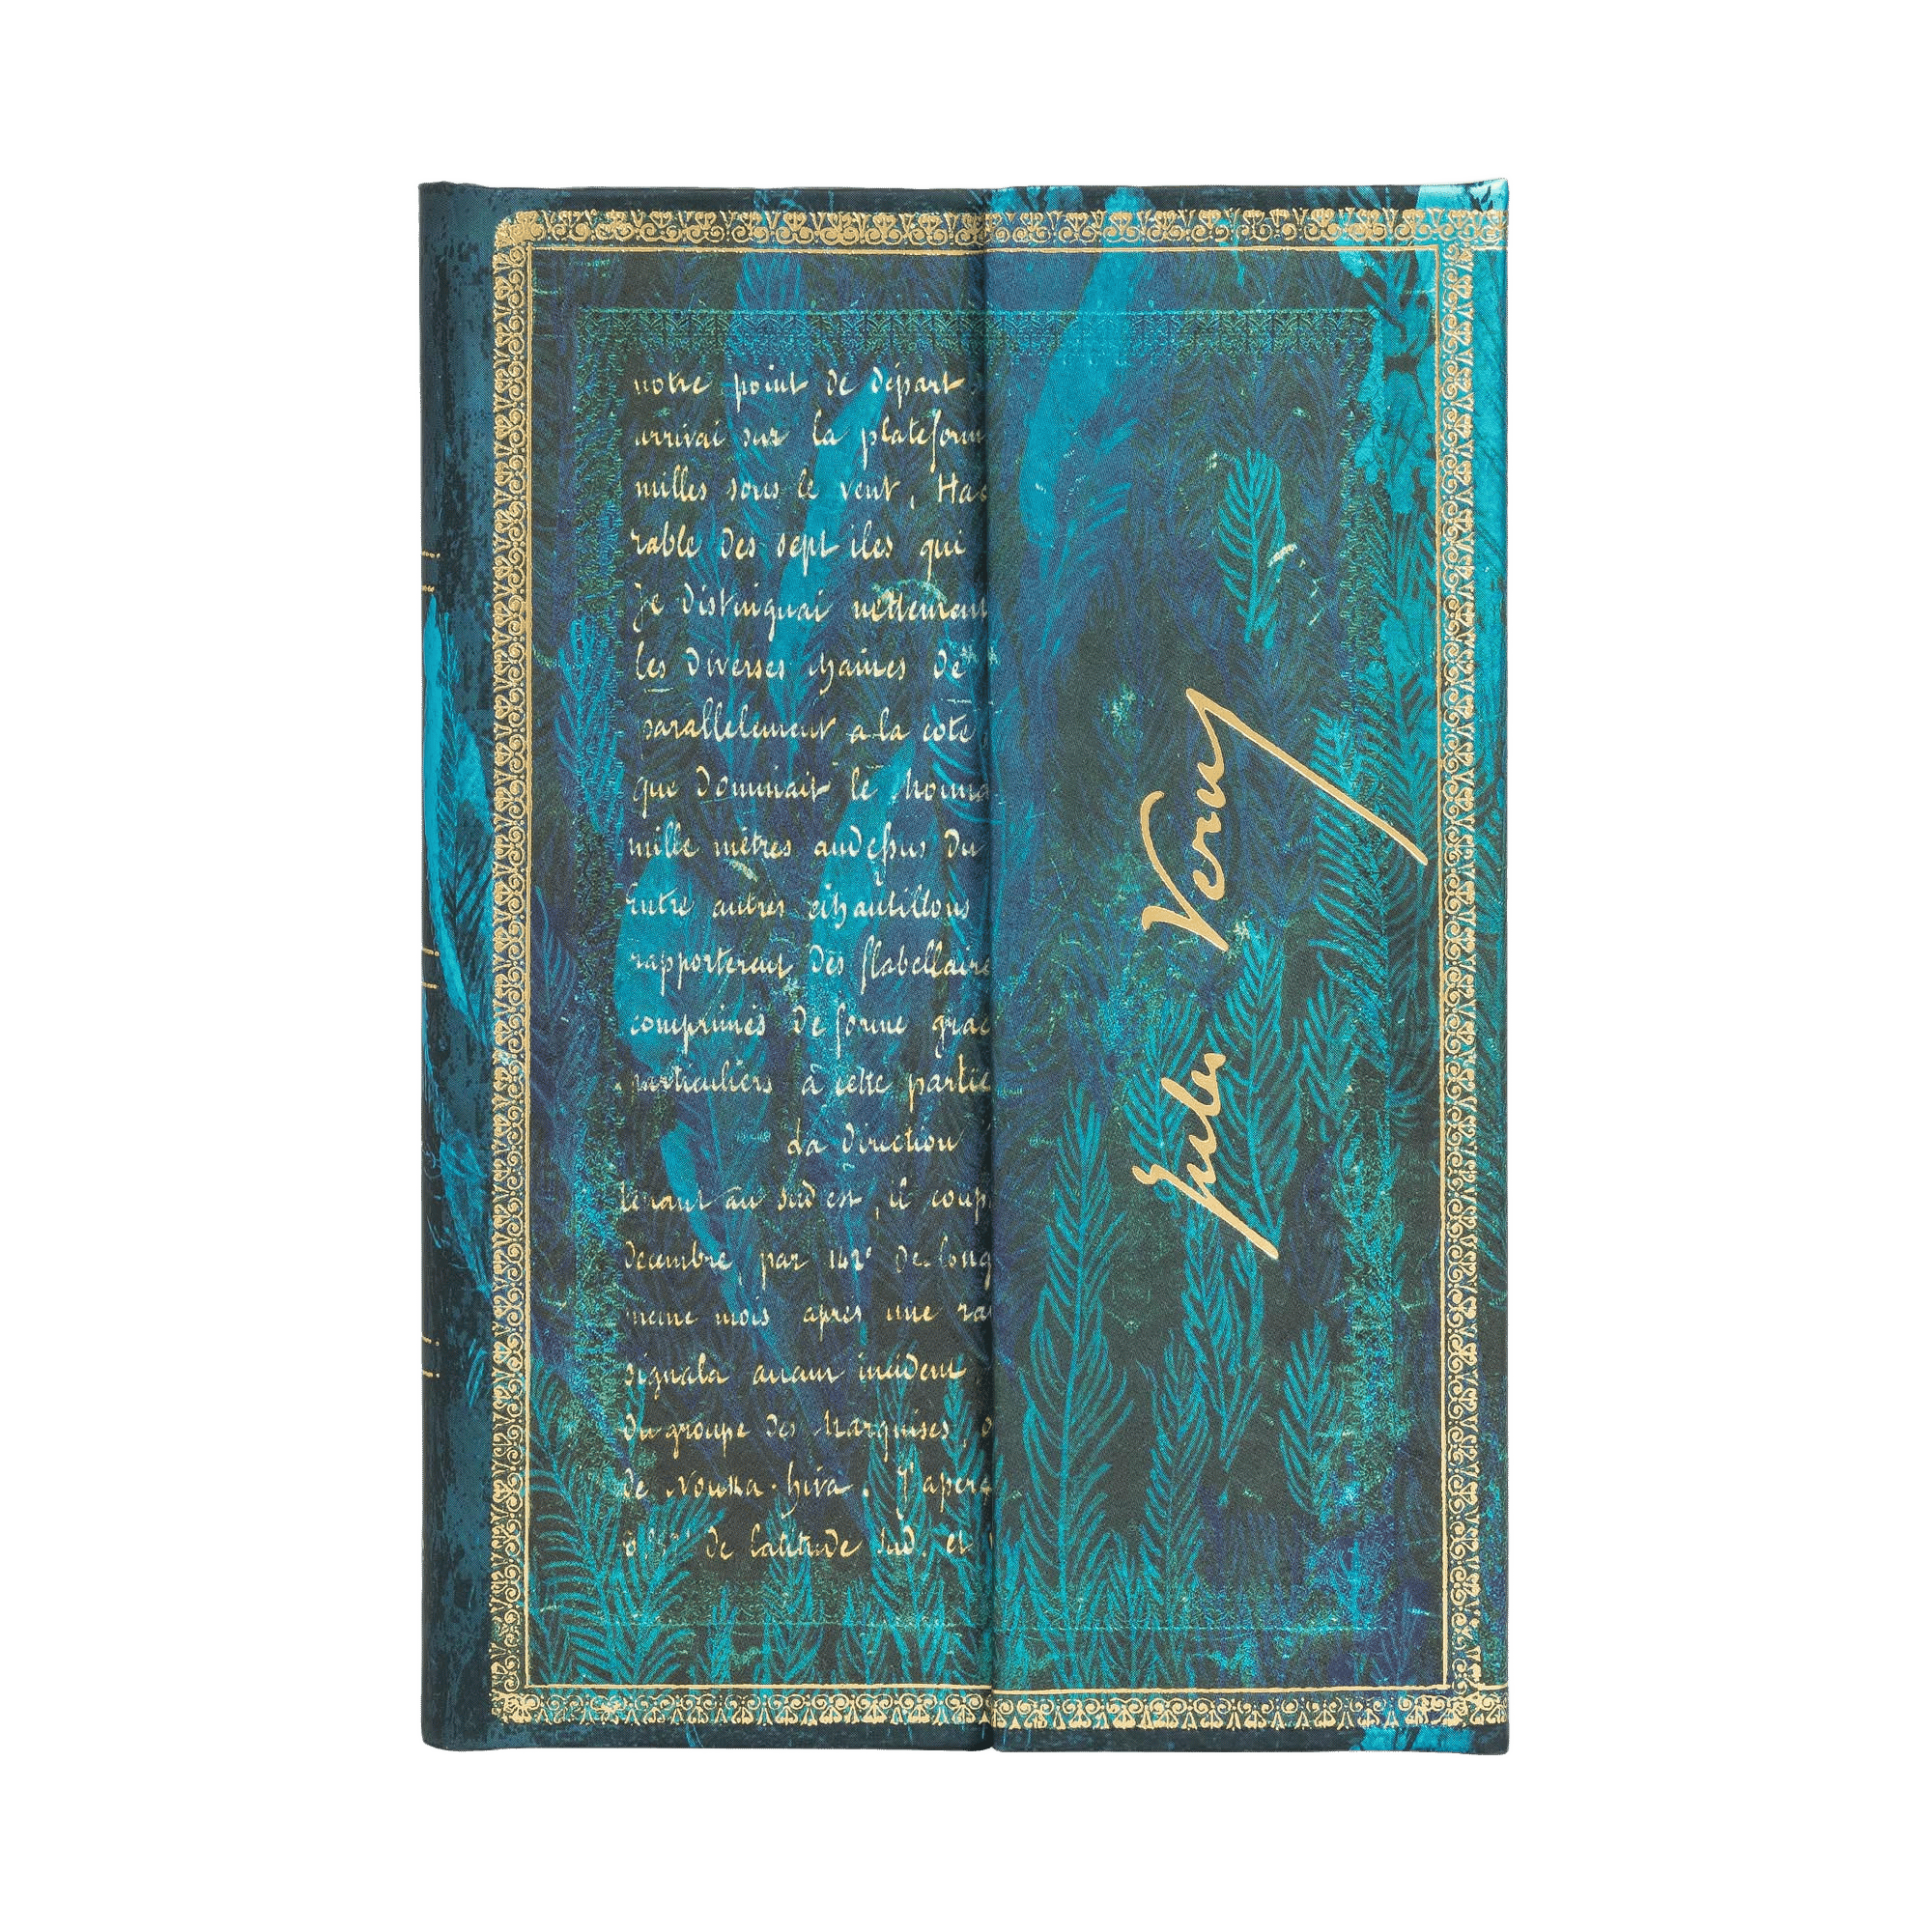 notre point de départ
arrivai sur la plateform
milles sous le vent, Hac
rable des sept îles qui
Je distinguai nettement
les diverses chaînes de
parallelement a la cote
que dominait le Mouna
mille mètres audessus du
Entre autres échantillons
rapporterent des flabellaire
comprimés de forme grac
particuliers à cette partie
La direction
tenant au sud est, il coup
décembre, par 142° de long
meme mois après une ra
signala aucun incident,
du groupe des Marquises,
de Nouka-hiva. J'aperç
de latitude sud, et
Jules Verne